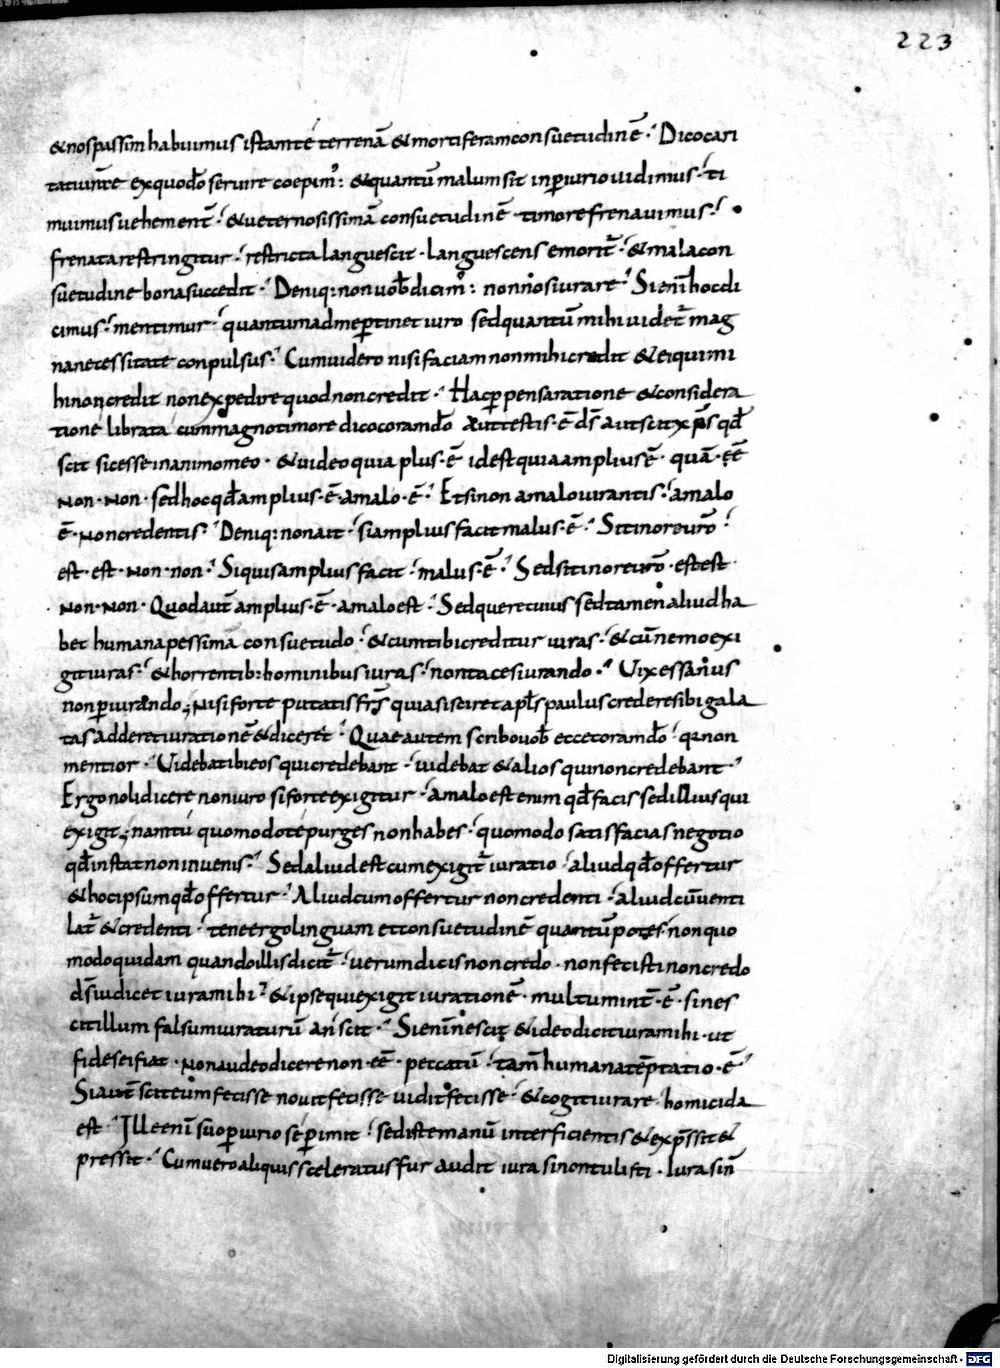 223
&nos passim habuimus istam te terrenā & mortiferam consuetudinē · Dico cari
tati un̄te ex quo dō seruire coepim' : & quantū malum sit in periurio uidimus · ti
muimus uehement̄ · & ueternosissimā consuetudinē timore frenauimus ·
frenata restringitur · restricta languescit · languescens emorit̄ · & mala con
suetudine bona succedit · Deniq: non uob̄ dicim' : non nos iurare · Si enī hoc di
cimus · mentimur · quantum ad me pertinet iuro sed quantū mihi uidet̄ mag
na necessitate conpulsus · Cum uidero nisi faciam non mihi credit & ei qui mi
hi non credit non expedire quod non credit · Hac perpensa ratione & considera
tione librata cum magno timore dico coram dō aut testis · ē ds̄ aut scit xp̄s qd̄
scit sic esse in animo meo · & uideo quia plus · ē id est quia amplius ē · quā · ēē
Non · Non · sed hoc qd̄ amplius · ē · a malo · ē · Etsi non a malo iurantis · a malo
ē · Non credentis · Deniq: non ait · si amplius facit malus · ē · Sit in ore ur̄o
est · est · Non · non · Si quis amplius facit · malus · ē · Sed sit in ore ur̄o · est est
Non · Non · Quod aut̄ amplius · ē · a malo est · Sed quere cuius sed tamen aliud ha
bet humana pessima consuetudo · & cum tibi creditur iuras · & cū nemo exi
git iuras · & horrentib: hominibus iuras · non taces iurando · Vix es sanus
non periurando ; Nisi forte putatis frs̄ quia si sciret apls̄ paulus credere sibi gala
tas adderet iurationē & diceret · Quae autem scribo uob̄ ecce coram dō · qa non
mentior · Videbat ibi eos qui credebant · uidebat & alios qui non credebant ·
Ergo noli dicere non iuro si forte exigitur · a malo est enim qd̄ facis sed illius qui
exigit ; nam tu quomodo te purges non habes · quomodo satisfacias negotio
qd̄ instat non inuenis · Sed aliud est cum exigit̄ iuratio · aliud qd̄ offertur
& hoc ipsum qd̄ offertur · Aliud cum offertur non credenti · aliud cū uenti
lat̄ & credenti · tene ergo linguam et consuetudinē quantū potes · non quo
modo quidam quando illis dicit̄ · uerum dicis non credo · non fecisti non credo
ds̄ iudicet iura mihi · & ipse qui exigit iurationē · multum int̄ · ē · si nes
cit illum falsum iuraturū an scit · Si enī nescit & ideo dicit iura mihi · ut
fides ei fiat · Non audeo dicere non · ēē · peccatū · tam̄ humana tēptatio · ē
Si aut̄ scit eum fecisse nouit fecisse uidit fecisse · & cogit iurare · homicida
est · Ille enī suo periurio se perimit · sed iste manū interficientis & exp̄ssit &
pressit · Cum uero aliquis sceleratus fur audit iura si non tulisti · Iura si n̄
Digitalisierung gefördert durch die Deutsche Forschungsgemeinschaft - DFG